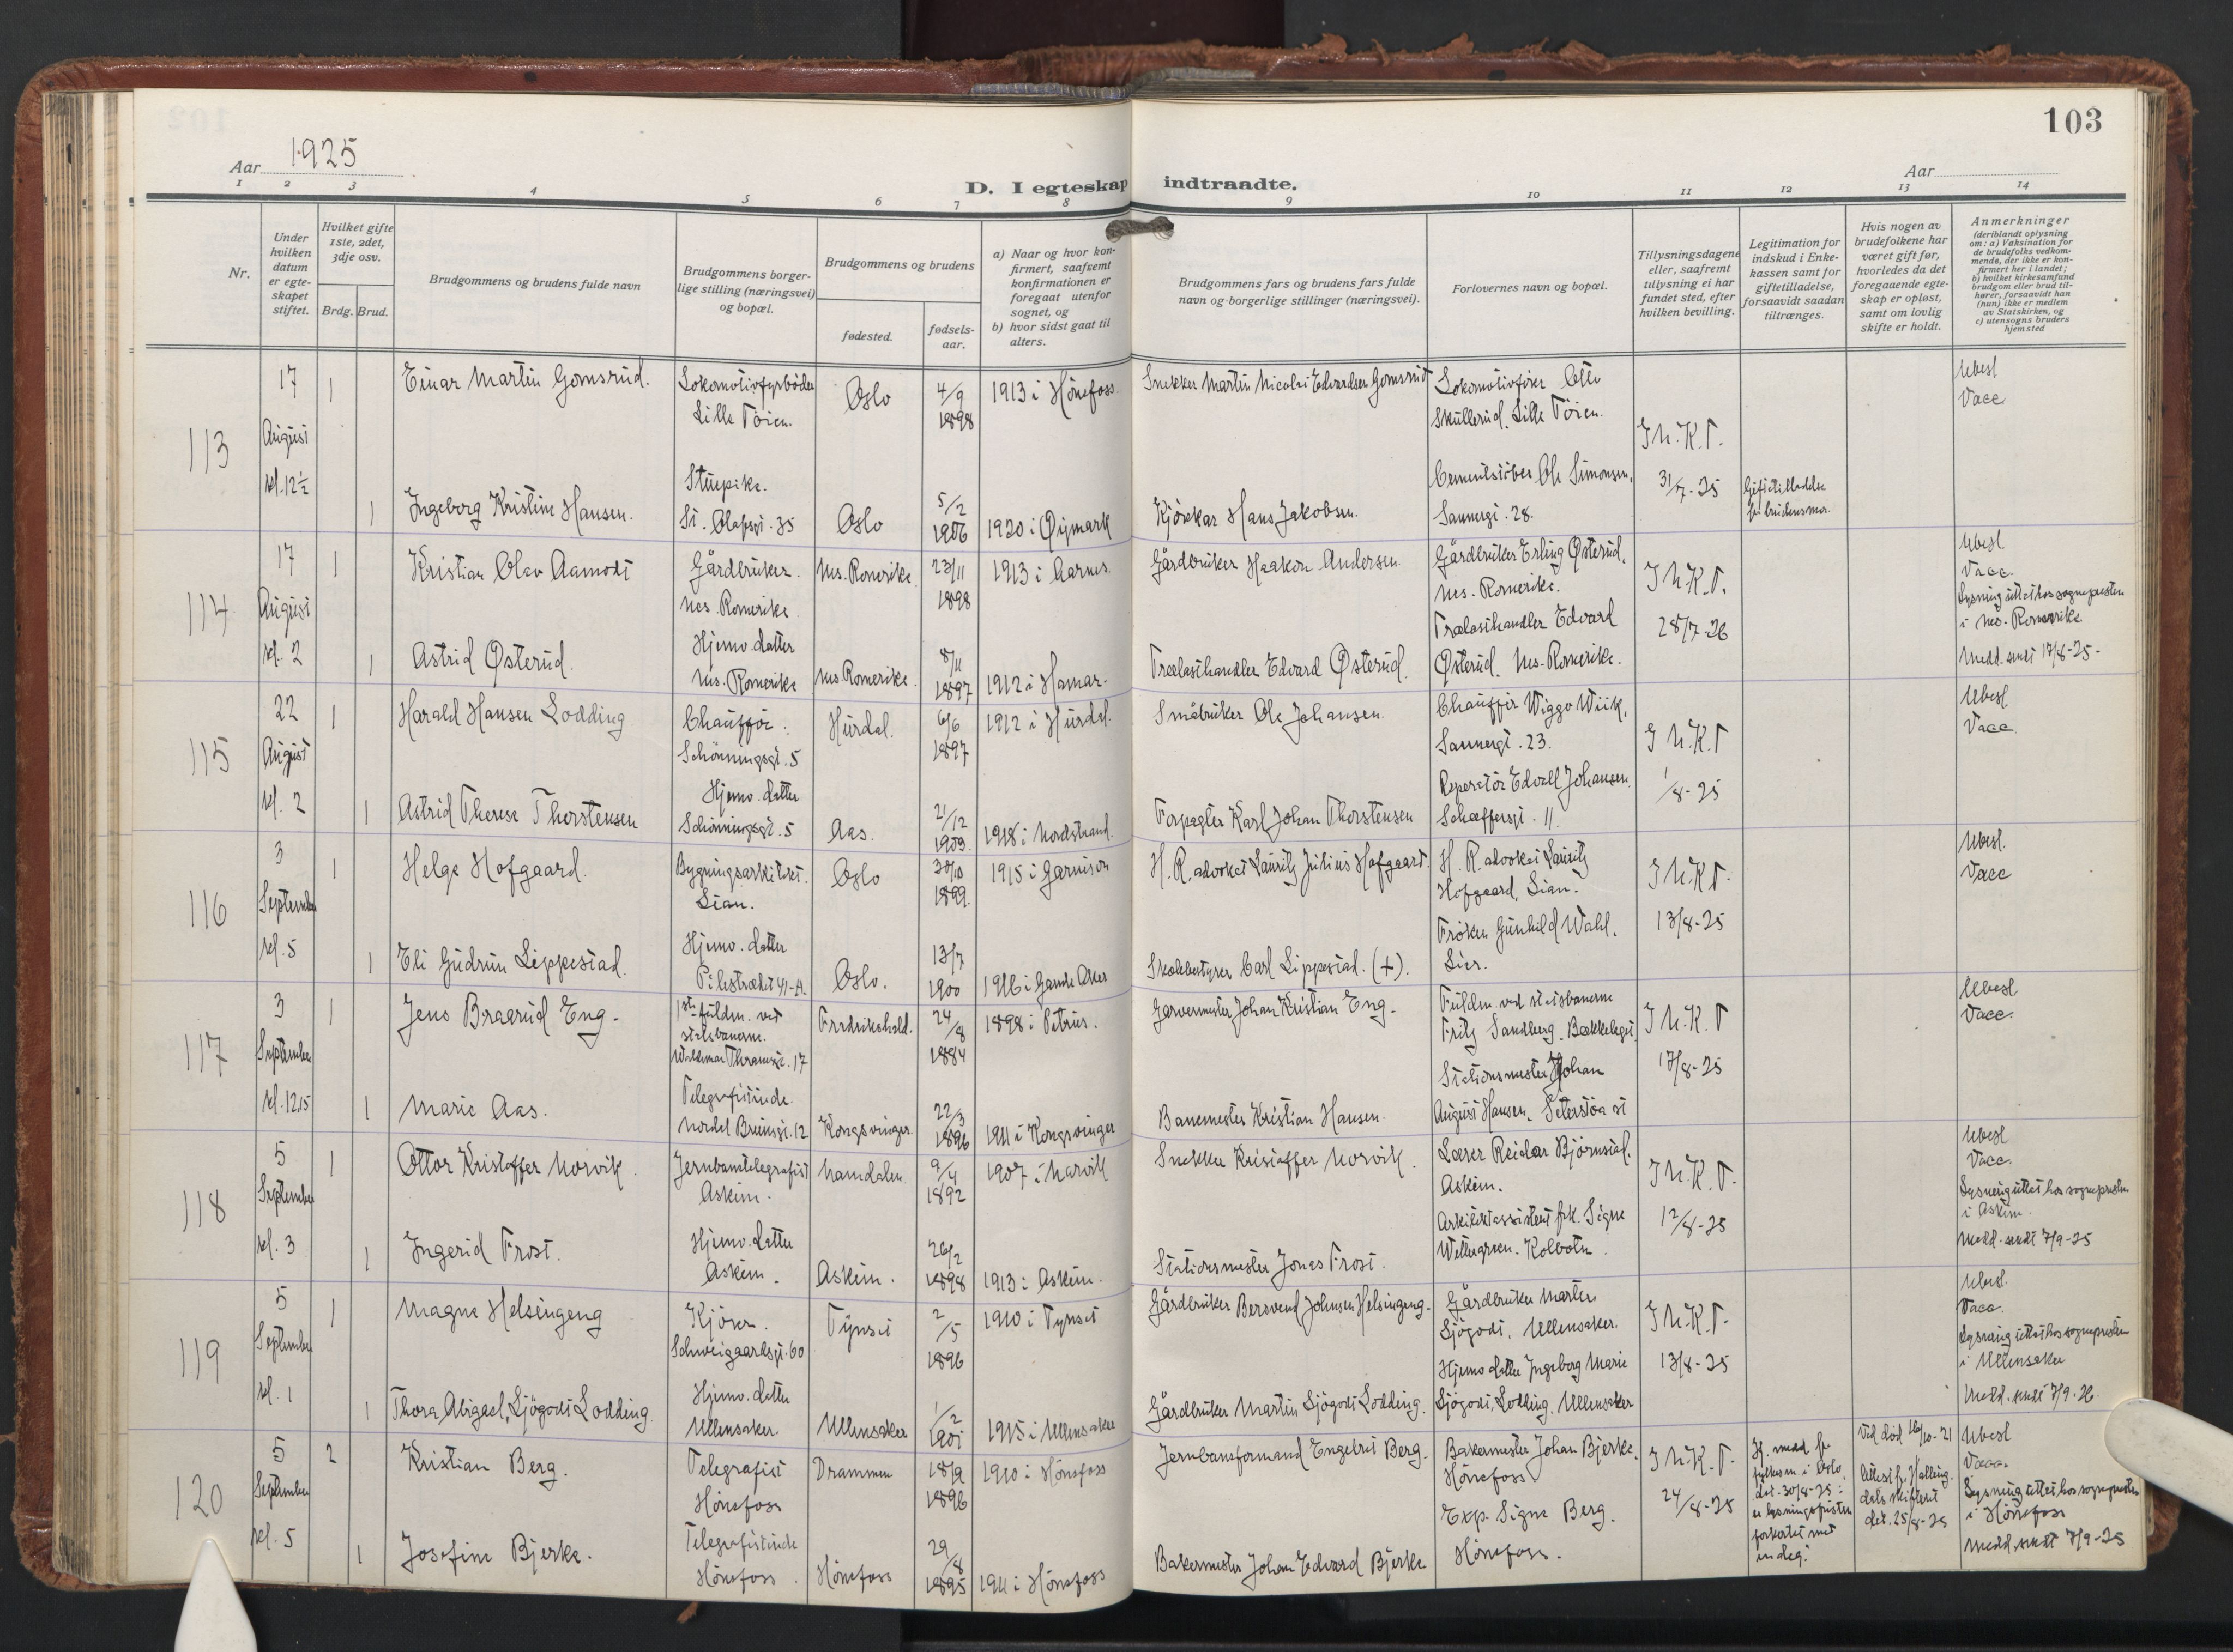 103
Aar 1925
D. I egteskap indtraadte.
Aar
1 2 3 4 5 6 7 8 9 10 11 12 13 14
Nr.
Under hvilken datum er egteskapet stiftet.
Hvilket gifte 1ste, 2det, 3dje osv.
Brdg. Brud.
Brudgommens og brudens fulde navn
Brudgommens borgerlige stilling (næringsvei) og bopæl.
Brudgommens og brudens
fødested.
fødselsaar.
a) Naar og hvor konfirmert, saafremt konfirmationen er foregaat utenfor sognet, og
b) hvor sidst gaat til alters.
Brudgommens fars og brudens fars fulde navn og borgerlige stillinger (næringsvei).
Forlovernes navn og bopæl.
Tillysningsdagene eller, saafremt tillysning ei har fundet sted, efter hvilken bevilling.
Legitimation for indskud i Enkekassen samt for giftetilladelse, forsaavidt saadan tiltrænges.
Hvis nogen av brudefolkene har været gift før, hvorledes da det foregaaende egteskap er opløst, samt om lovlig skifte er holdt.
Anmerkninger
(deriblandt oplysning om: a) Vaksination for de brudefolks vedkommende, der ikke er konfirmert her i landet; b) hvilket kirkesamfund brudgom eller brud tilhører, forsaavidt han (hun) ikke er medlem av Statskirken, og c) utensogns bruders hjemsted
113
17 August kl. 12½
1 Einar Martin Gomsrud.
Lokomotivfyrbøder Lille Töien.
Oslo
4/9 1898
1913 i Hönefoss.
Snekker Martin Nicolai Edvardsen Gomsrud
Lokomotivfører Otto Skullerud, Lille Töien.
J. N. K. T.
31/7-25
Ubesl
Vacc
1 Ingeborg Kristine Hansen.
Stuepike.
St. Olafsgt. 35
Oslo
5/2 1906
1920 i Øymark
Kjörekar Hans Jakobsen.
Ole Simonsen, Sannergt. 28.
114
17 August kl. 2
1 Kristian Olav Aamodt
Gårdbruker.
Nes. Romerike.
Nes. Romerike.
23/11 1898
1913 i Aarnes.
Gårdbruker Haakon Andersen.
Gårdbruker Erling Østerud, Nes. Romerike.
J. N. K. T.
28/7-26
Ubesl
Vacc.
Lysning uttat hos sognepresten
i Nes. Romerike
Medd. sendt 17/8-25-
1 Astrid Østerud.
Hjemv. datter
Nes. Romerike
Nes. Romerike.
8/11 1897
1912 i Hamar.
Trælasthandler Edvard Østerud.
Trælasthandler Edvard Østerud. Nes. Romerike.
115
22 August kl. 2
1 Harald Hansen Lodding
Chauffør.
Schönningsgt. 5
Hurdal.
6/6 1897
1912 i Hurdal.
Småbruker Ole Johansen.
Chauffør Wiggo Wiik, Sannergt. 23.
J N. K. T
1/8-25
Ubesl.
Vacc.
1 Astrid Therese Thorstensen
Hjemv. datter
Schönningsgt. 5
Aas.
21/12 1903
1918 i Nordstrand.
Forpagter Karl Johan Thorstensen
Reperatör Edvall Johansen. Schæffersgt. 11.
116
3 September kl. 5
1 Helge Hofgaard.
Bygningsarkitekt.
Lian.
Oslo
30/10 1899.
1915 i Garnison
H. R. advokat Lauritz Julius Hofgaard.
H. R. advokat Lauritz Hofgaard, Lian.
J N. K. T.
13/8-25
Ubesl.
Vacc
1 Eli Gudrun Lippestad.
Hjemv. datter
Pilestrædet 41-A.
Oslo.
13/7 1900
1916 i Gamle Aker
Skolebestyrer Carl Lippestad. (+).
Fröken Gunhild Wahl. Lier.
117
3 September kl. 1215
1 Jens Braarud Eng.
1ste fuldm. ved statsbanerne.
Waldemar Thranesgt. 17
Fredrikshald.
24/8 1884
1898 i Petrus.
Johan Kristian Eng.
Fuldm. ved statsbanerne Fritz Sandberg. Bækkelaget
J N. K. T
17/8-25
Ubesl
Vacc.
1 Marie Aas.
Telegrafistinde.
Nordal Brunsgt. 12
Kongsvinger.
22/3 1896
1911 i Kongsvinger
Banemester Kristian Hansen.
Stationsmester Johan August Hansen, Seterstöa st
118
5 September kl. 3
1 Ottar Kristoffer Norvik.
Jernbanetelegrafist
Askim.
Namdalen.
9/4 1892
1907 i Narvik
Snekker Kristoffer Norvik.
Lærer Reidar Björnstad. Askim.
J. N. K. T.
12/8-25
Ubesl
Vacc.
Lysning uttat hos sognepresten
i Askim.
Medd. sendt 7/9-25
1 Ingerid Frost.
Hjemv. datter
Askim.
Askim.
26/2 1898
1913 i Askim.
Stationsmester Jonas Frost.
Arkitektassistent frk. Signe Kolbotn.
119
5 September kl. 1
1 Magne Helsingeng
Kjörer.
Schweigaardsgt. 60
Tynset
2/5 1896
1910 i Tynset
Gårdbruker Bersvend Johnsen Helsingeng.
Gårdbruker Martin Sjögodt, Ullensaker.
J N. K. T.
13/8-25
Ubesl.
Vacc.
Lysning uttat hos sognepresten
i Ullensaker
Medd. sendt 7/9-26
1 Thora Abigael Sjögodt Lodding.
Hjemv. datter
Ullensaker.
Ullensaker
1/2 1901
1915 i Ullensaker
Gårdbruker Martin Sjögodt Lodding.
Hjemv. datter Ingeborg Marie Sjögodt, Lodding. Ullensaker
120
5 September kl. 5
2 Kristian Berg.
Telegrafist
Hönefoss
Drammen
18/9 1896
1910 i Hönefoss
Jernbaneformand Engebret Berg.
Bakermester Johan Bjerke, Hönefoss
J N. K. T.
24/8-25
Ved död 16/10-21
Attest fr. Hallingdals skifterett dat. 25/8-25
Ubesl
Vacc.
Lysning uttat hos sognepresten
i Hönefoss
Medd. sendt 7/9-25
1 Josefine Bjerke.
Telegrafistinde
Hönefoss.
Hönefoss
29/8 1895
1911 i Hönefoss
Bakermester Johan Edvard Bjerke
Exp. Signe Berg. Hönefoss.